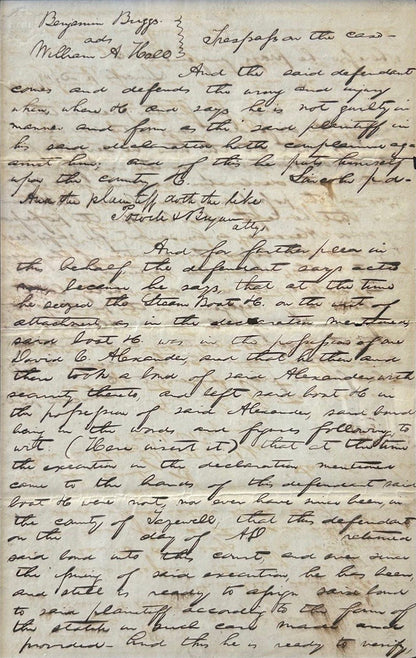 Benjamin Briggs
ads
William A. Hall
Trespass on the case—
And the said defendant
comes and defends the wrong and injury
when, where &c and says he is not guilty in
manner and form as the said plaintiff in
his said declaration hath complained aga
inst him. and of this he puts himself
upon the county &c. Lincoln p.d—
And the plaintiff doth the like
Powell & Bryan
attys
And for further plea in
this behalf the defendant says actio
non, because he says, that at the time
he seized the Steam Boat &c. on the writ of
attachment, as in the declaration mentioned
said boat &c was in the possession of one
David C. Alexander, and that he then and
there took a bond of said Alexander, with
security thereto, and left said boat &c in
the possession of said Alexander, said bond
being in the words and figures following to
witt. (Here insert it) that at the time
the execution in the declaration mentioned
came to the hands of this defendant said
boat &c were not, nor ever have since been in
the county of Tazewell that this defendant
on the day of AD returned
said bond into this court, and ever since
the of said execution, he has been
and still is ready to assign said bond
to said plaintiff according to the form of
the statute in such case made and
provided— And this he is ready to verify,